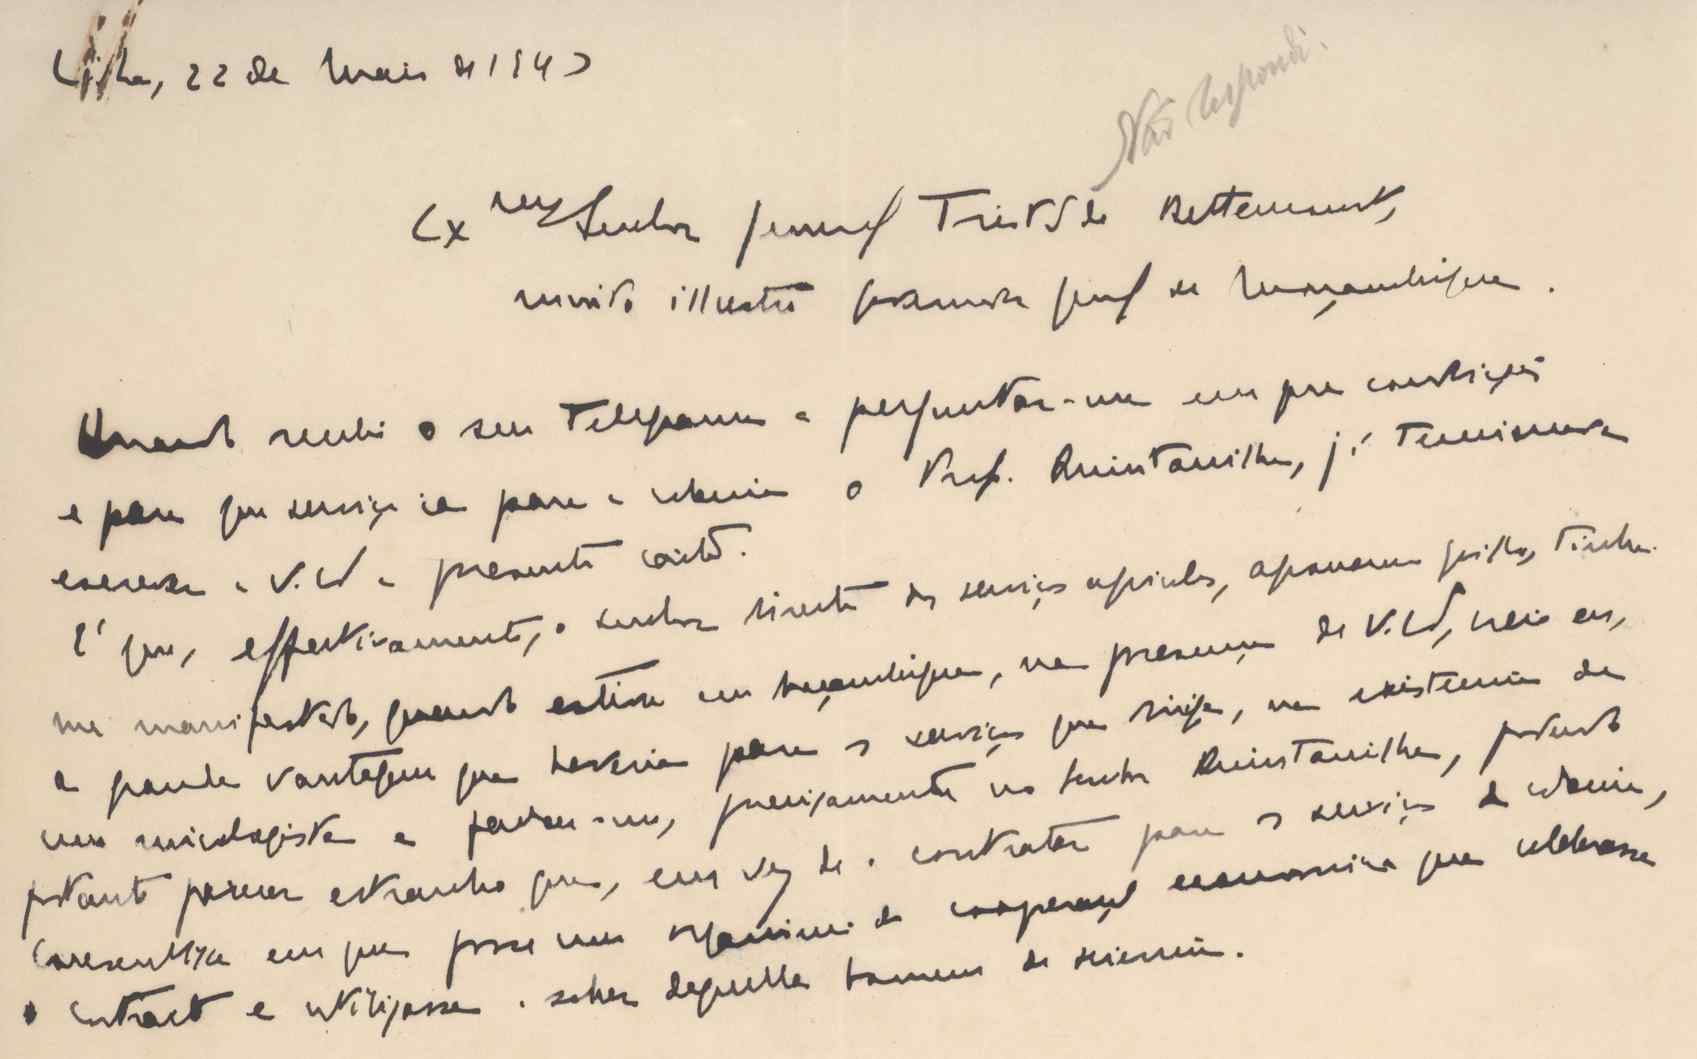 Lisboa, 22 de Maio de 1943
Não respondi.
Exmo Senhor General Tristão de Bettencourt,
muito illustre governador geral de Moçambique.
Quando recebi o seu telegrama a perguntar-me em que condições
e para que serviço ia para a colonia o Prof. Quintanilha, já tencionava
escrever a V. Exª a presente carta.
É que, effectivamente, o senhor director dos serviços agricolas, agronomo tinha
me manifestado, quando estive em Moçambique, na presença de V. Exª, creio eu,
a grande vantagem que haveria para os serviços que dirige, na existencia de
um micologista e falou-me, precisamente no senhor Quintanilha, podendo
portanto parecer estranho que, em vez de o contratar para os serviços da colonia,
consentisse em que fosse um organismo de cooperação economica que celebrasse
o contracto e utilizasse o saber daquelle homem de sciencia.